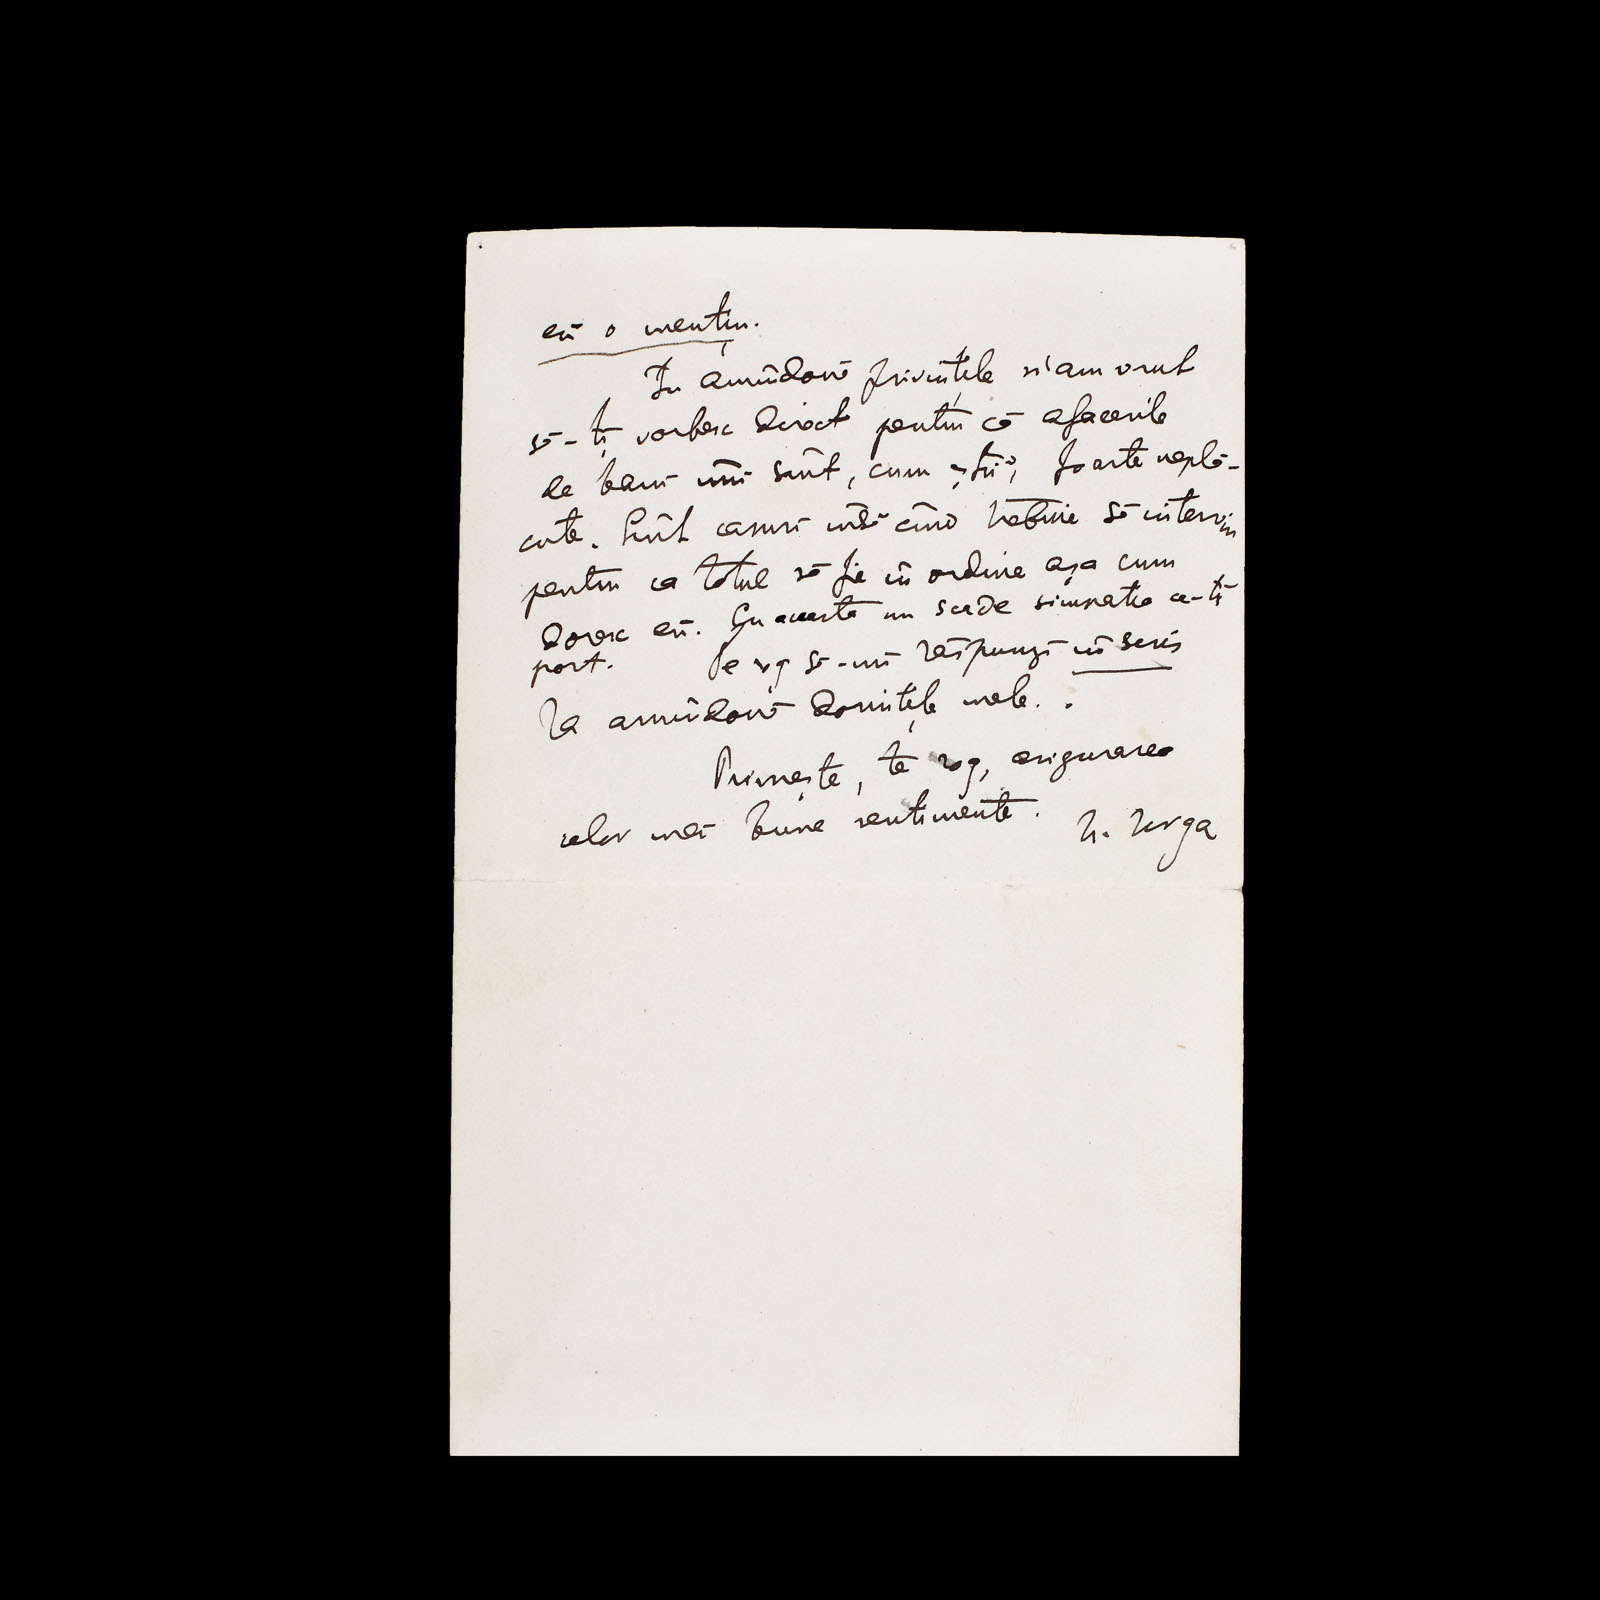 eŭ o mențin.
In amîndouă privințele n'am vrut
să-ți vorbesc direct pentru că afacerile
de bani îmi sînt, cum știi, foarte neplă-
cute. Sînt casuri însă cînd trebuie să intervin
pentru ca totul să fie în ordine așa cum
doresc eŭ. Cu aceasta nu scade simpatia ce-ți
port. Te rog să-mi răspunzi în scris
la amîndouă dorințele mele.
Primește, te rog, asigurarea
celor mai bune sentimente. N. Iorga